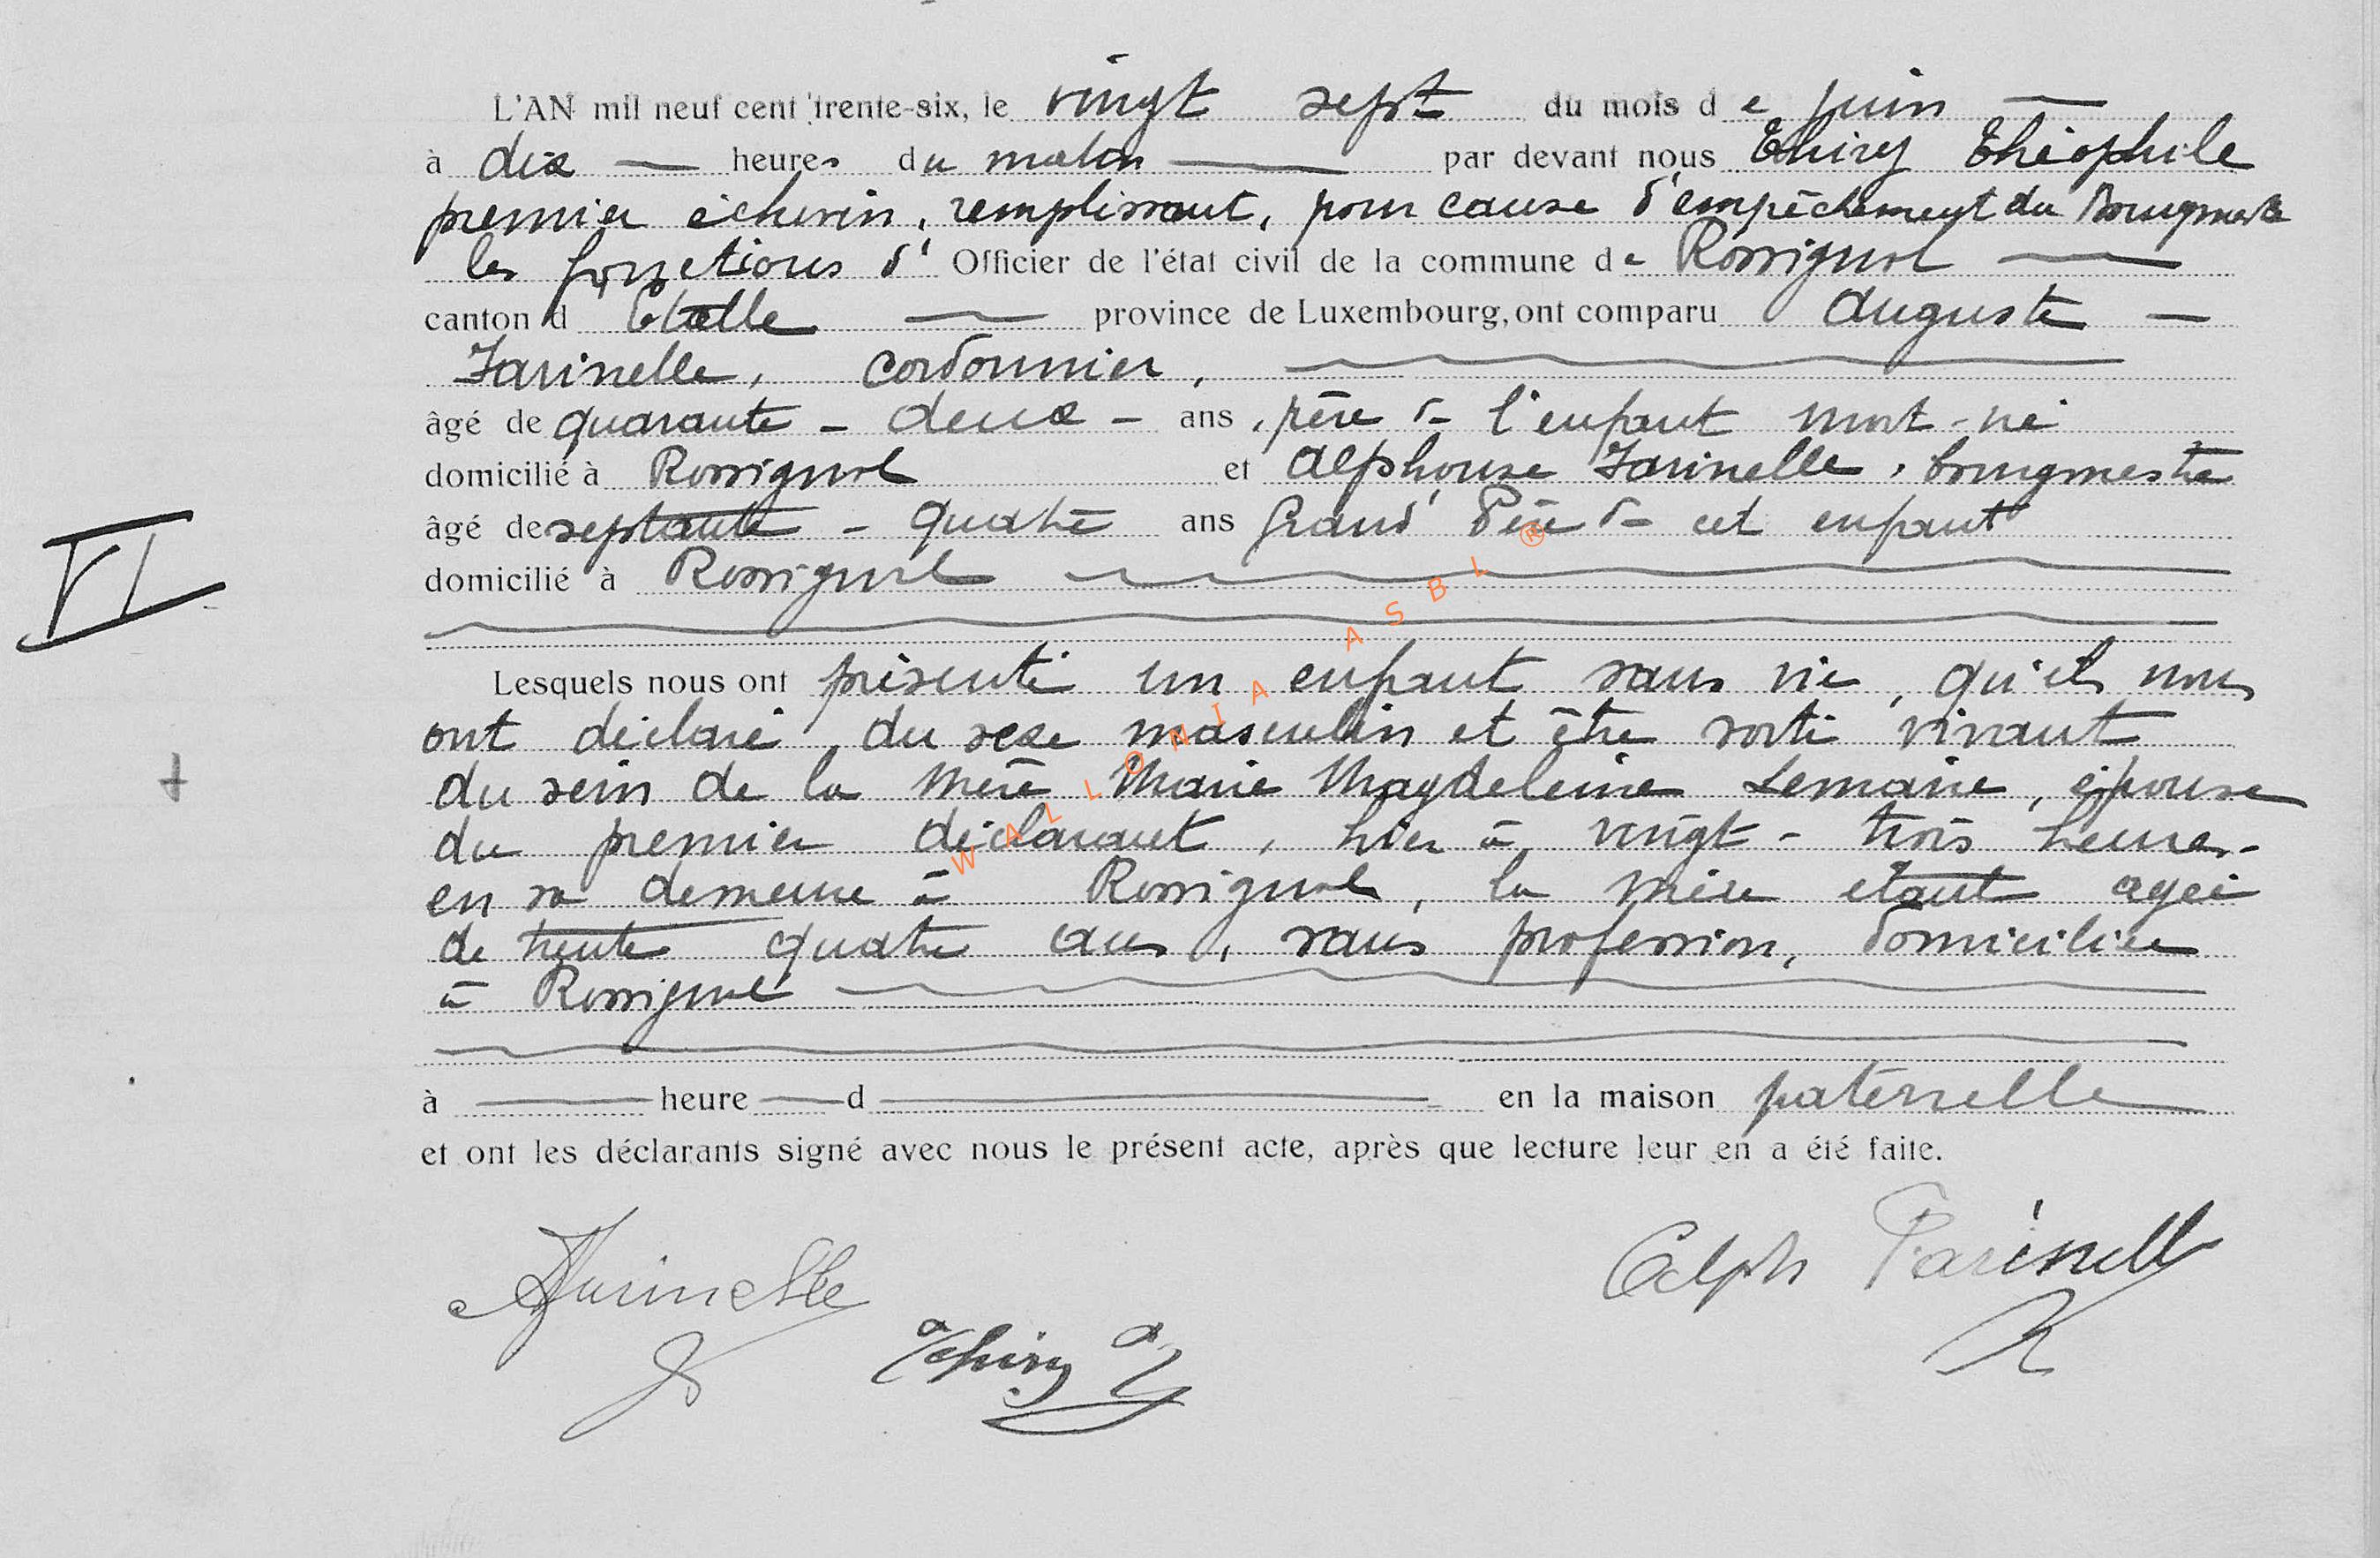 L'AN mil neuf cent trente-six, le vingt sept du mois de juin
à dix heures du matin par devant nous Thiry Théophile
premier échevin, remplissant, pour cause d'empêchement du Bourgmestre
les fonctions d' Officier de l'état civil de la commune de Rossignol
canton d' Etalle province de Luxembourg, ont comparu Auguste
Farinelle, cordonnier,
âgé de quarante - deux - ans, père de l'enfant mort-né
domicilié à Rossignol et Alphonse Farinelle, bourgmestre
âgé de septante - quatre ans Grand Père de cet enfant
VI
domicilié à Rossignol
Lesquels nous ont présenté un enfant sans vie, qu'ils nous
ont déclaré, du sexe masculin et être sorti vivant
du sein de la mère Marie Magdeleine Lemaire, épouse
du premier déclarant, hier à vingt - trois heures
en sa demeure à Rossignol, la mère étant agée
de trente quatre ans, sans profession, domiciliée
à Rossignol
à heure d en la maison paternelle
et ont les déclarants signé avec nous le présent acte, après que lecture leur en a été faite.
AFarinelle
Alph Farinelle
Thiry
WALLONIA ASBL ®